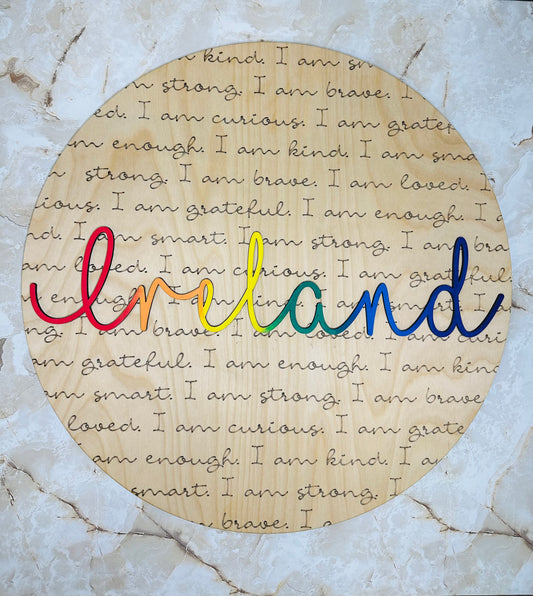 m kind. I am sm
m strong. I am brave. I
ed. I am curious. I am gratef
m enough. I am kind. I am sma
strong. I am brave. I am loved. I
ious. I am grateful. I am enough. I a
nd. I am smart. I am strong. I am bra
am loved. I am curious. I am grateful.
Ireland
enough. I am kind. I am smart. I am
ng. I am brave. I am loved. I am curi
am grateful. I am enough. I am kind
am smart. I am strong. I am brave
loved. I am curious. I am grate
am enough. I am kind. I a
smart. I am strong. I
brave. I a